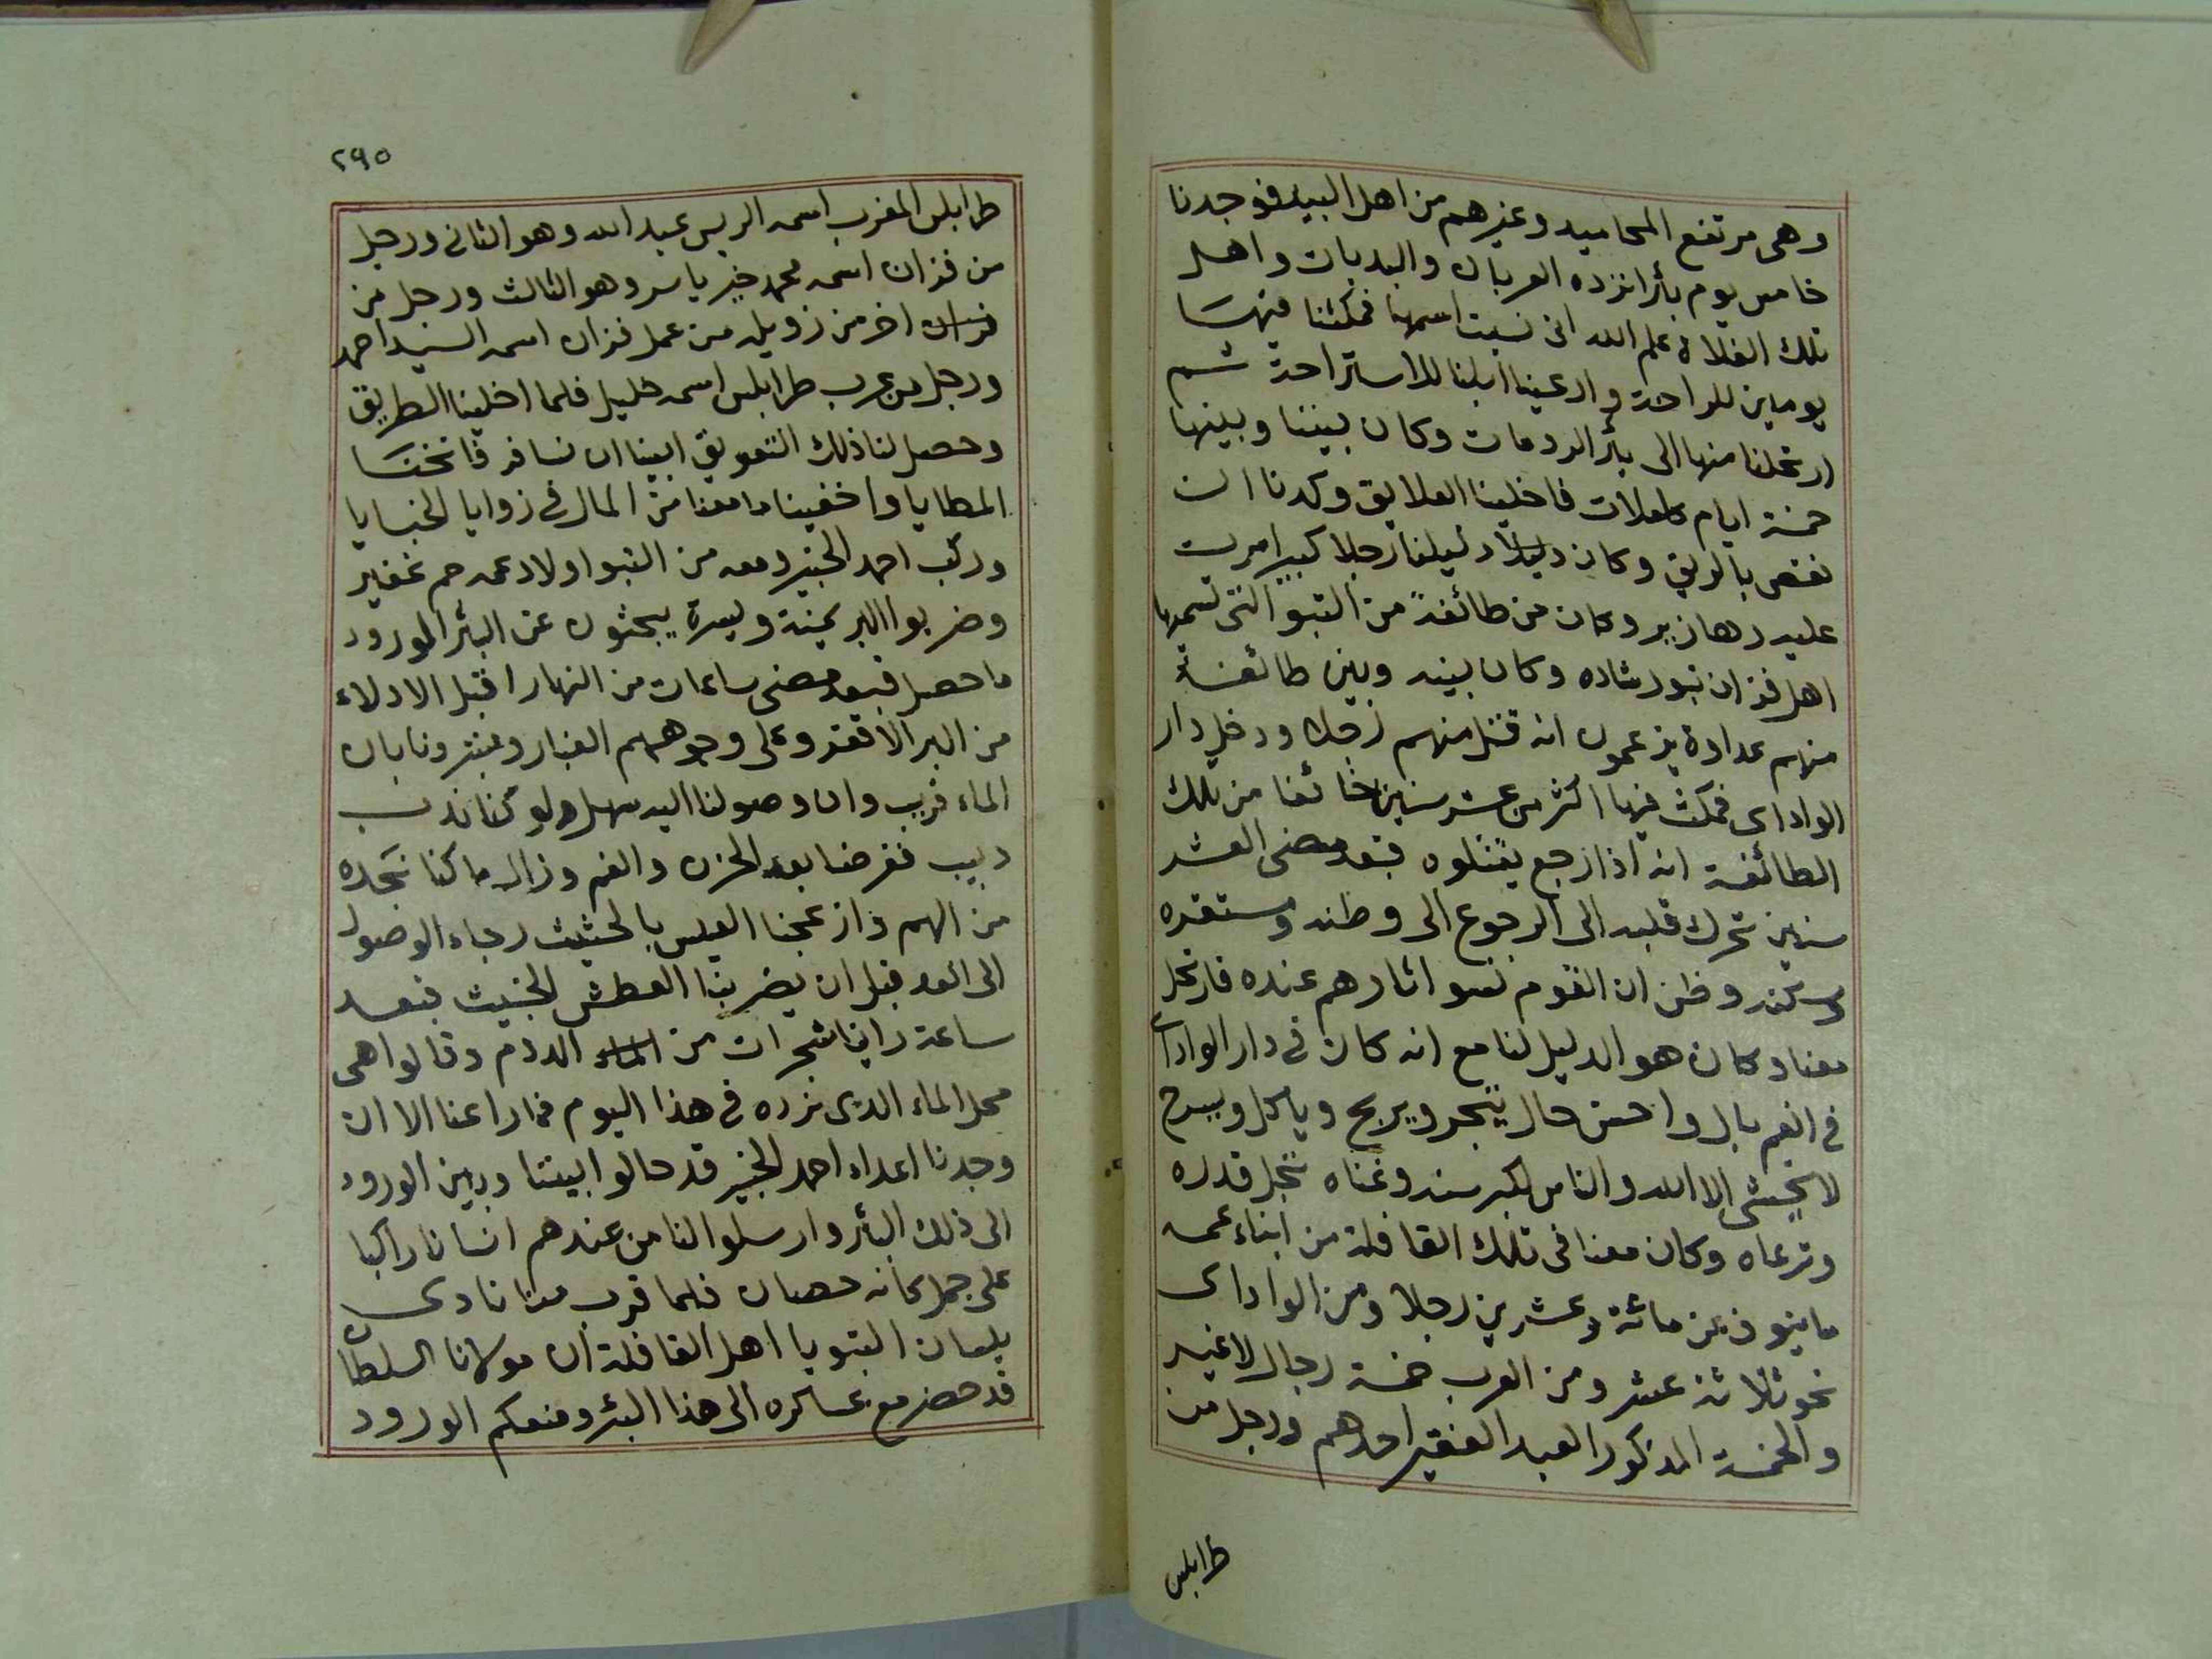 وهى مرتفع المحاميد وغيرهم من اهل البيد فوجدنا
خامس يوم بأرا نزده العربان والبديات واهل
تلك الفلاة علم الله انى نسيت اسمها فمكثنا فيها
يومين للراحة وارعينا ابلنا للاستراحة ثم
ارتحلنا منها الى بئر الردمات وكان بيننا وبينها
خمسة ايام كاملات فاخلينا العلايق وكدنا ان
نغتص بالريق وكان دليلا دليلنا رجلا كبيرا مرت
عليه دهازير وكان من طائفة من التبو التى تسميها
اهل فزان تبو رشاده وكان بينه وبين طائفة
منهم عداوة يزعمون انه قتل منهم رجلا ودخل دار
الواداى فمكث فيها اكثر من عشر سنين خائفا من تلك
الطائفة انه اذا رجع يقتلوه فبعد مضى العشر
سنين تحرك قلبه الى الرجوع الى وطنه ومستقره
وسكنه وظن ان القوم نسوا ثارهم عنده فارتحل
معنا وكان هو الدليل لنا مع انه كان فى دار الواداى
فى انعم بال واحسن حال يتجر ويربح وياكل ويسرح
لا يخشى الا الله والناس لكبر سنه وغناه تجل قدره
وترعاه وكان معنا فى تلك القافلة من ابناء عمه
ما ينوف عن مائة وعشرين رجلا ومن الواداى
نحو ثلاثة عشر ومن العرب خمسة رجال لا غير
والخمسة المذكور العبد الفقير احدهم ورجل من
طرابلس
٢٩٥
طرابلس المغرب اسمه الريس عبد الله وهو الثانى ورجل
من فزان اسمه محمد خير ياسر وهو الثالث ورجل من
فزان اخر من زويله من عمل فزان اسمه السيد احمد
ورجل من عرب طرابلس اسمه خليل فلما اخلينا الطريق
وحصل لنا ذلك التعويق ابينا ان نسافر فانخنا
المطايا واخفينا ما معنا من المال فى زوايا الخبايا
وركب احمد الخبير ومعه من التبو اولاد عمه جم غفير
وضربوا البر يمينة ويسرة يبحثون عن البئر المورود
ما حصل فبعد مضى ساعات من النهار اقبل الادلاء
من البر الاقفر وعلى وجوههم الغبار وبشرونا بان
الماء قريب وان وصولنا اليه سهل ولو كنا ندب
دبيب ففرحنا بعد الحزن والغم وزال ما كنا نجده
من الهم وازعجنا العيس بالحثيث رجاء الوصول
الى العد قبل ان يضر بنا العطش الخبيث فبعد
ساعة راينا شجرات من الماء الدوم وقالوا هى
محل الماء الذى نرده فى هذا اليوم فما راعنا الا ان
وجدنا اعداء احمد الخبير قد حالوا بيننا وبين الورود
الى ذلك البئر وارسلوا لنا من عندهم انسانا راكبا
على جمل كانه حصان فلما قرب منا نادى
بلسان التبو يا اهل القافلة ان مولانا السلطان
قد حضر مع عساكره الى هذا البئر ومنعكم الورود